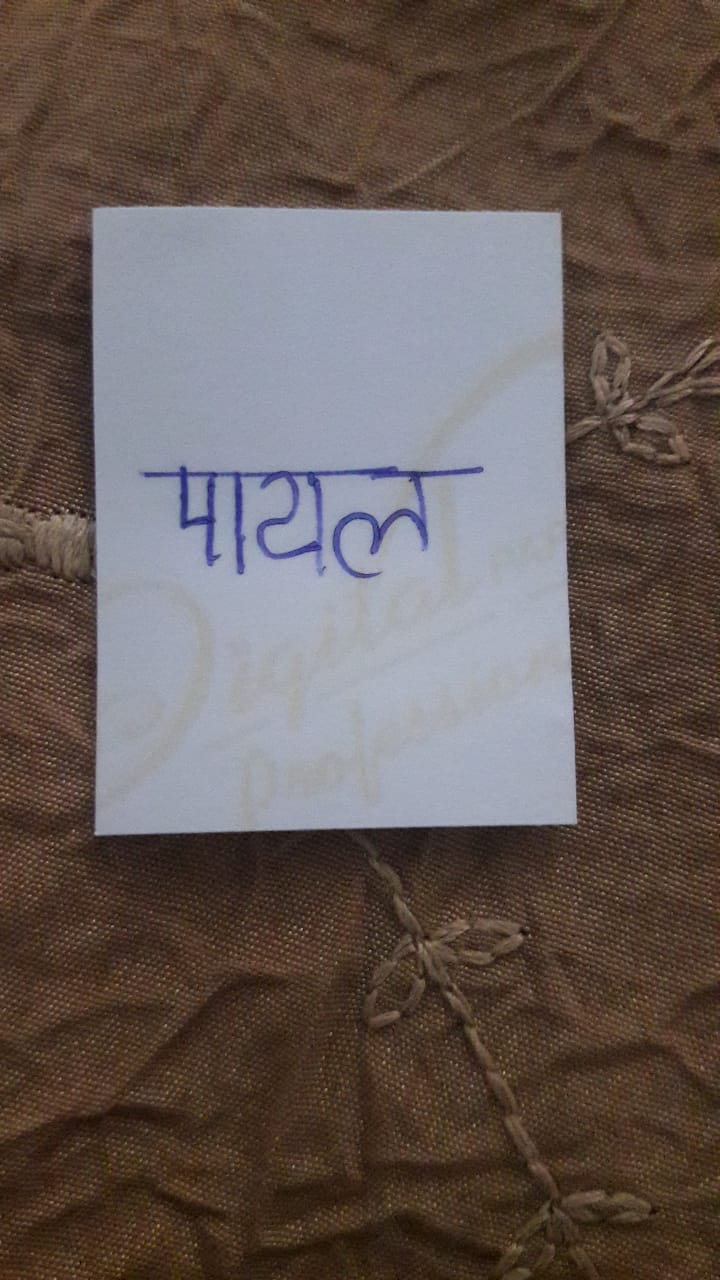 पायल
Digital
Profession